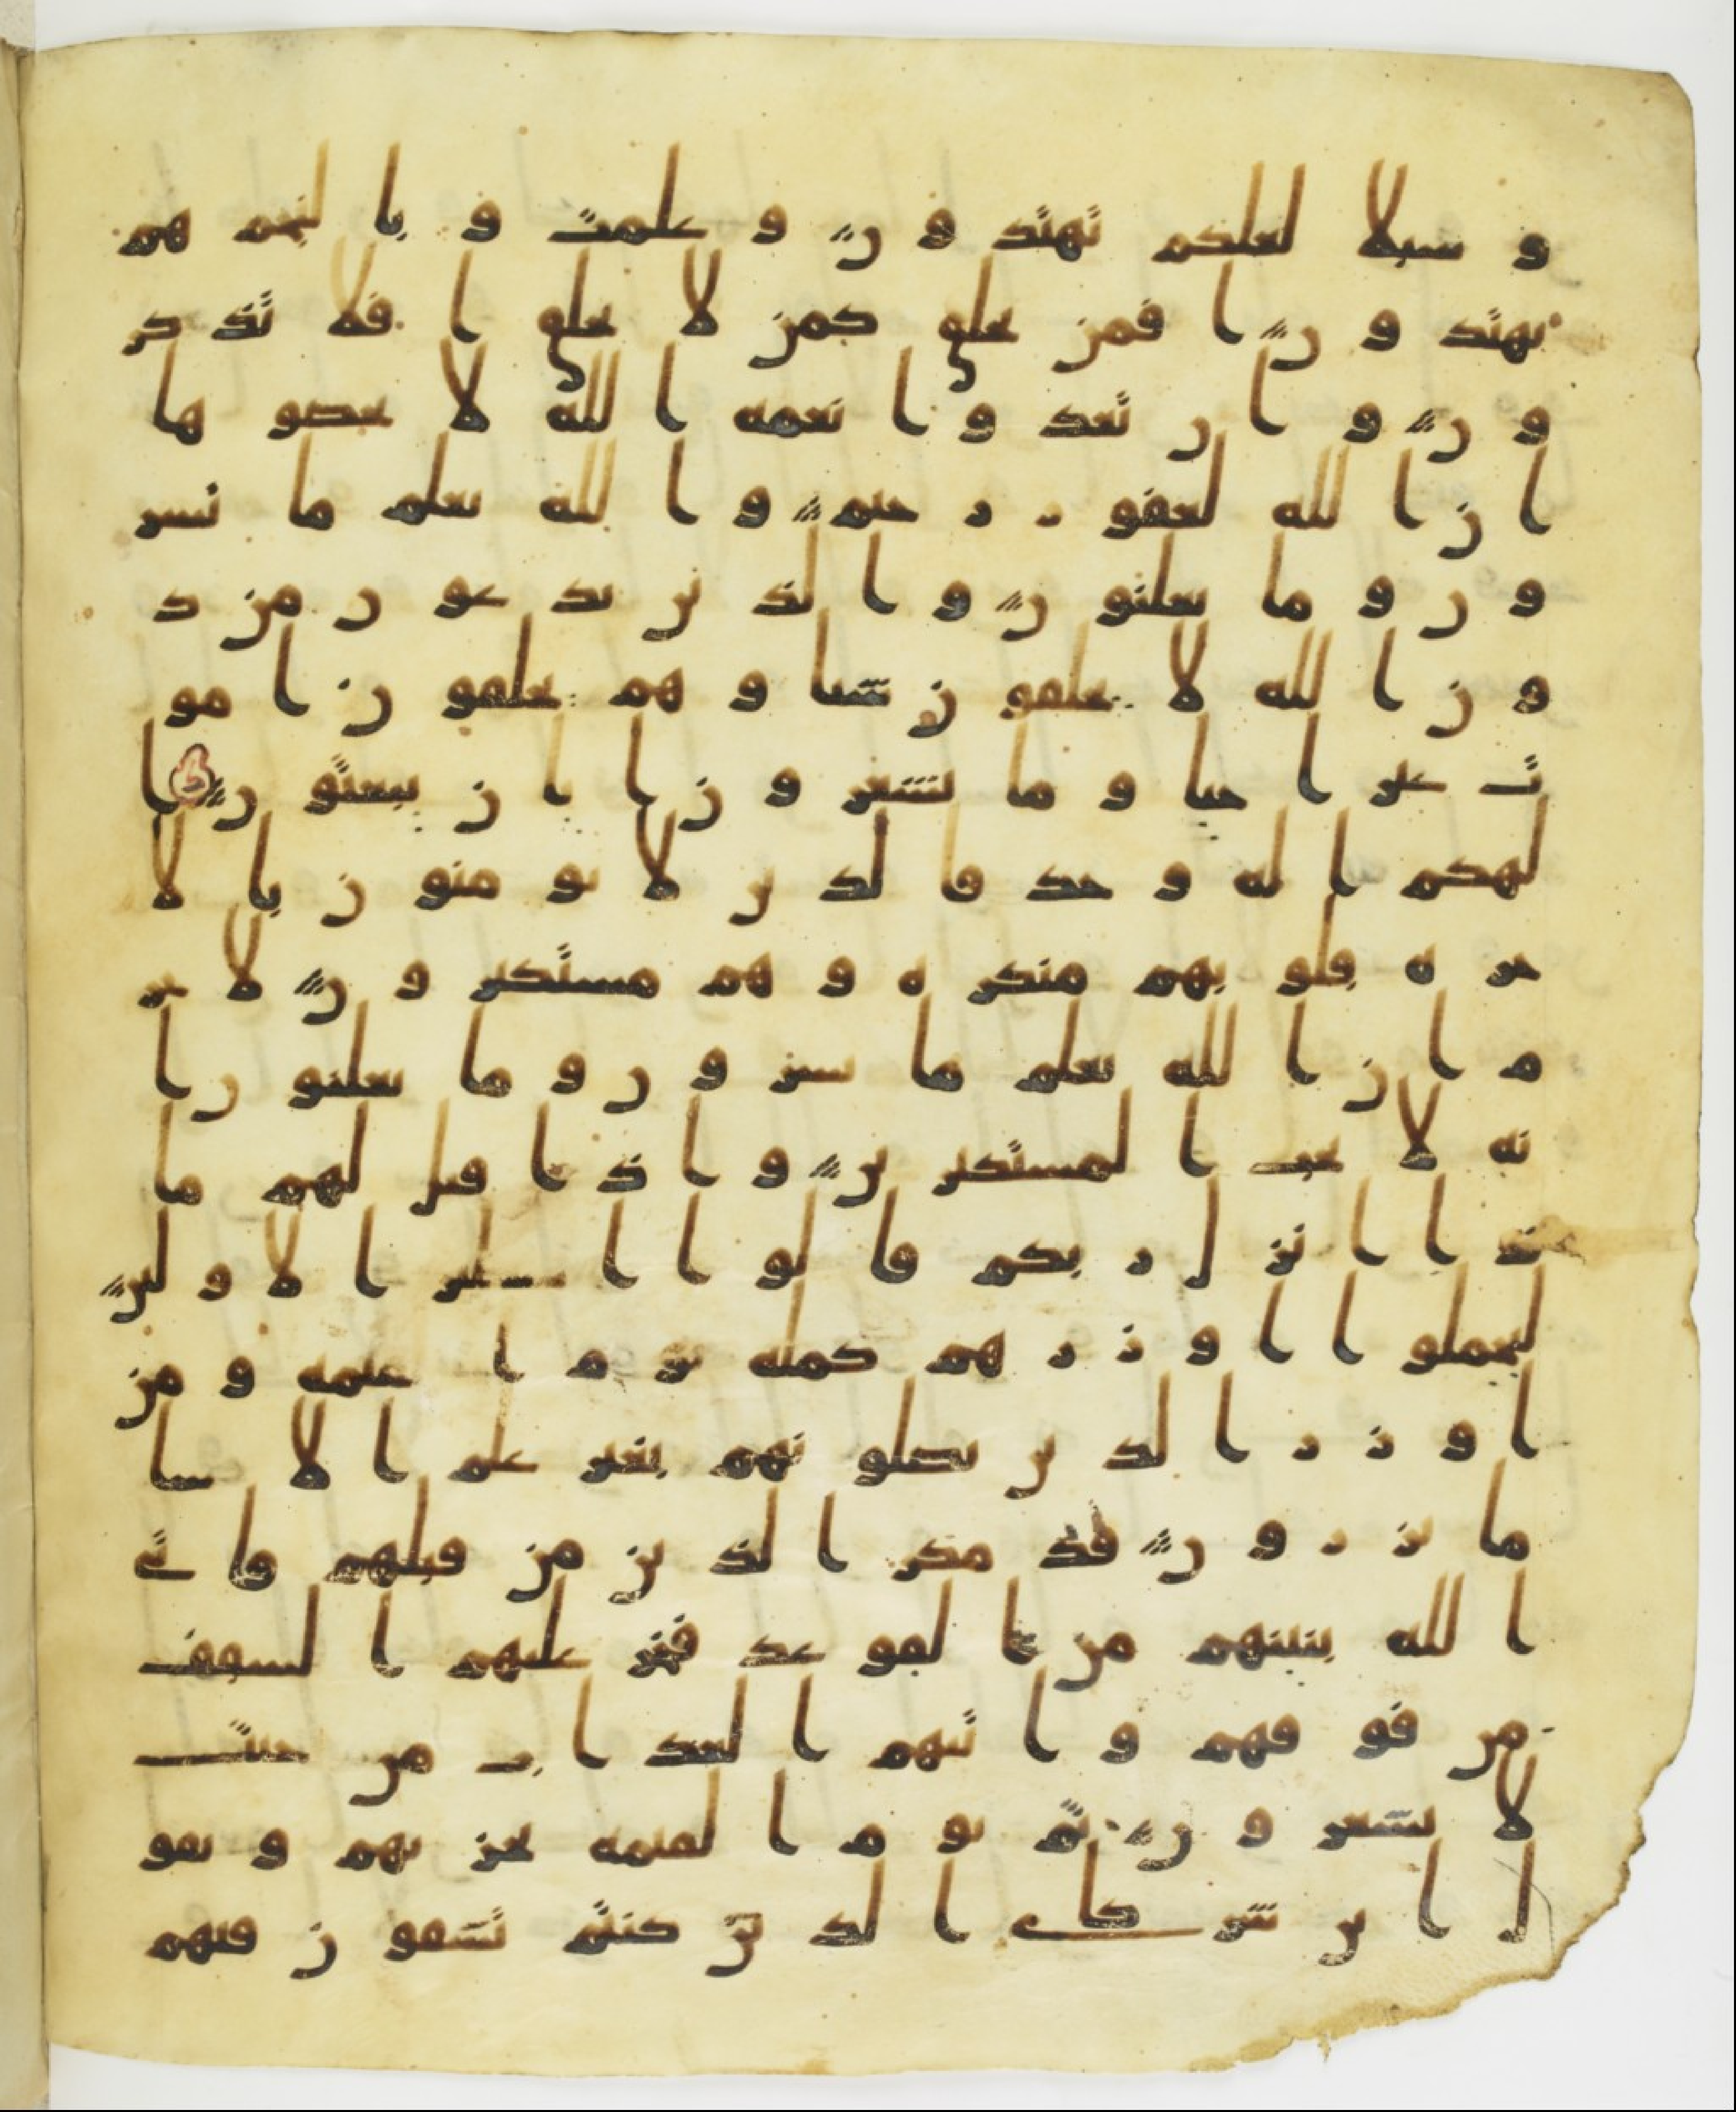 و سبلا لعلكم تهتدون وعلمت وبالنجم هم
يهتدون افمن يخلق كمن لا يخلق افلا تذكر
ون وان تعدوا نعمه الله لا تحصوها
ان الله لغفور رحيم والله يعلم ما تسر
ون وما تعلنون والذين يدعون من د
ون الله لا يخلقون شيا وهم يخلقون امو
ت غير احيا وما يشعرون ايان يبعثون ا
لهكم اله وحد فالذين لا يومنون بالا
خره قلوبهم منكره وهم مستكبرون لا جر
م ان الله يعلم ما يسرون وما يعلنون ا
نه لا يحب المستكبرين واذا قيل لهم ما
ذا انزل ربكم قالوا اسطير الاولين
ليحملوا اوزرهم كمله يوم القيمه ومن
اوزر الذين يضلونهم بغير علم الا سا
ما يزرون قد مكر الذين من قبلهم فاتى
الله بنينهم من القوعد فخر عليهم السقف
من فوقهم واتيهم العذاب من حيث
لا يشعرون ثم يوم القيمه يخزيهم ويقو
ل اين شركاي الذين كنتم تشقون فيهم